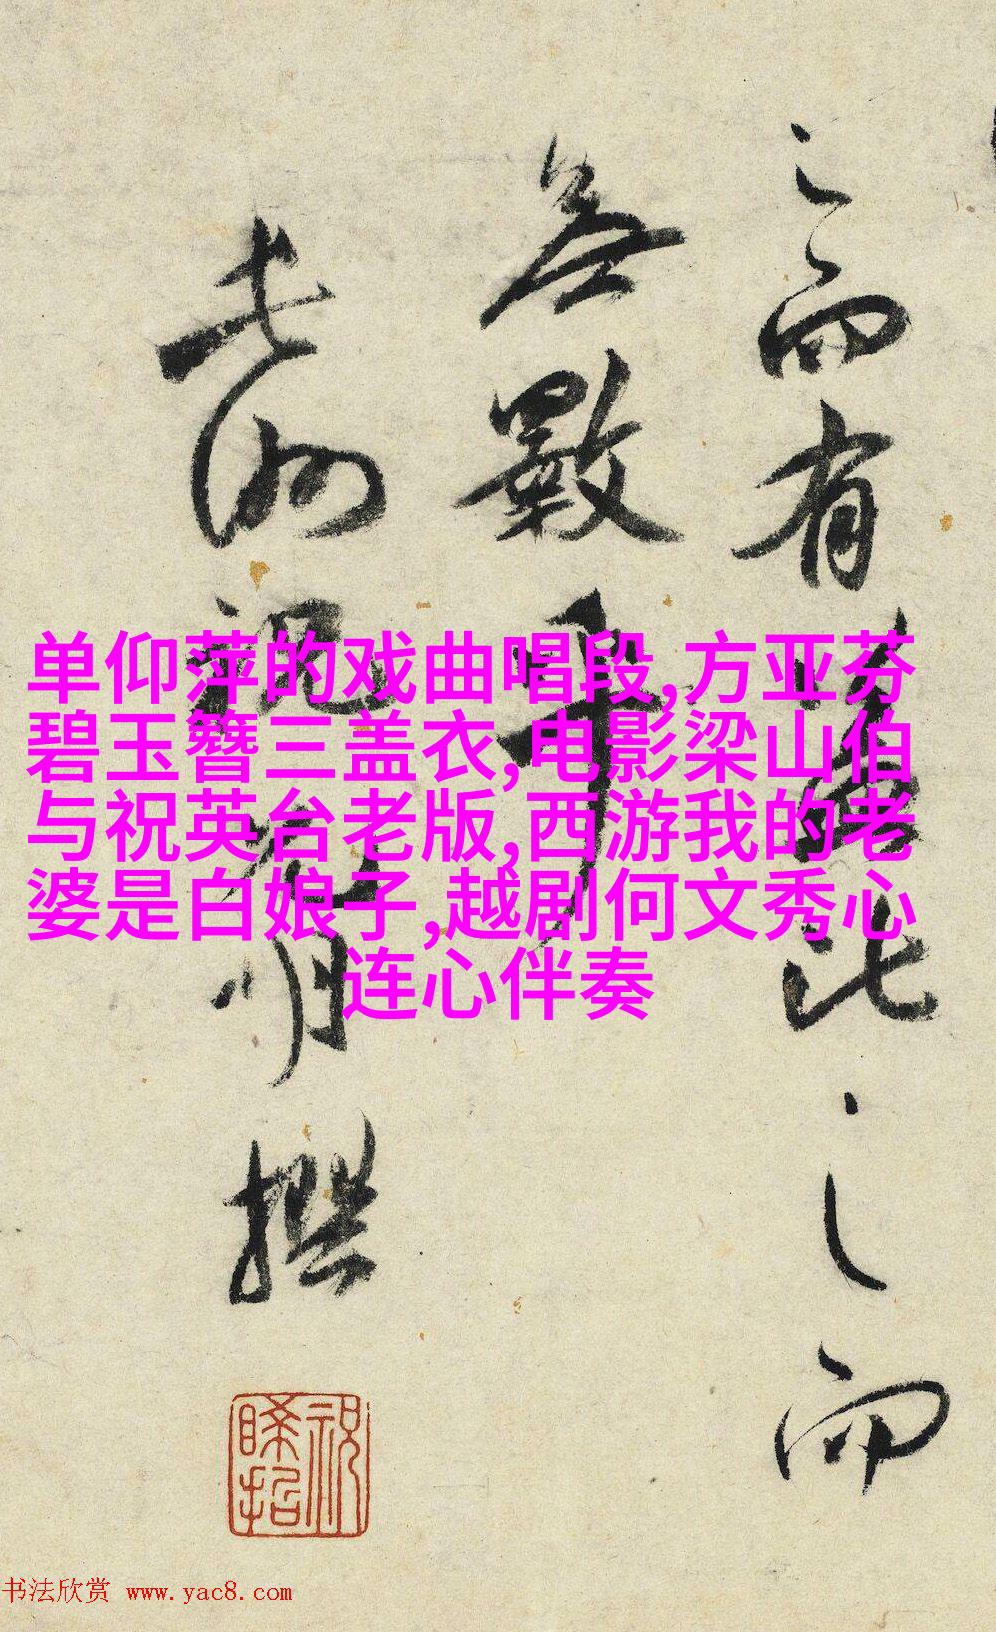 之而有比之而
無數
長洲祝允明撰
单仰萍的戏曲唱段,方亚芬
碧玉簪三盖衣,电影梁山伯
与祝英台老版,西游我的老
婆是白娘子,越剧何文秀心
连心伴奏
书法欣赏 www.yac8.com